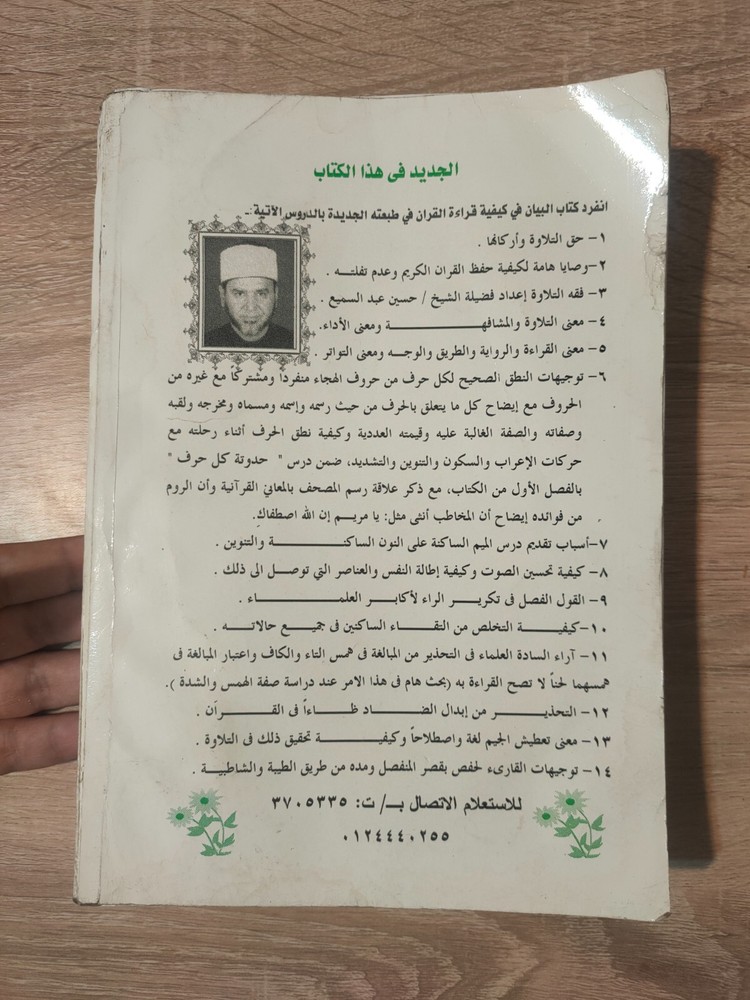 الجديد فى هذا الكتاب
انفرد كتاب البيان في كيفية قراءة القران في طبعته الجديدة بالدروس الآتية:ـ
١- حق التلاوة وأركانها .
٢-وصايا هامة لكيفية حفظ القران الكريم وعدم تفلتـــه .
٣- فقه التلاوة إعداد فضيلة الشيخ / حسين عبد السميع .
٤- معنى التلاوة والمشافهــــــــــــة ومعنى الأداء.
٥- معنى القراءة والرواية والطريق والوجــه ومعنى التواتر .
٦- توجيهات النطق الصحيح لكل حرف من حروف الهجاء منفرداً ومشتركاً مع غيره من
الحروف مع إيضاح كل ما يتعلق بالحرف من حيث رسمه وإسمه ومسماه ومخرجه ولقبه
وصفاته والصفة الغالبة عليه وقيمته العددية وكيفية نطق الحرف أثناء رحلته مع
حركات الإعراب والسكون والتنوين والتشديد، ضمن درس " حدوتة كل حرف "
بالفصل الأول من الكتاب، مع ذكر علاقة رسم المصحف بالمعانى القرآنية وأن الروم
من فوائده إيضاح أن المخاطب أنثى مثل: يا مريـم إن الله اصطفاكِ.
٧-أسباب تقديم درس الميم الساكنة على النون الساكنــــــــــة والتنوين .
٨- كيفية تحسين الصوت وكيفية إطالة النفس والعناصر التي توصـل الى ذلك .
٩- القول الفصل فى تكريـــر الراء لأكابــر العلمـــــــاء .
١٠-كيفيـــة التخلص من التقـــاء الساكنين فى جميــع حالاتــه .
١١- آراء السادة العلماء فى التحذير من المبالغة فى همس التاء والكاف واعتبار المبالغة فى
همسهما لحناً لا تصح القراءة به (بحث هام فى هذا الامر عند دراسة صفة الهمس والشدة ).
١٢- التحذيـــــر من إبدال الضـــاد ظـــاءاً فى القـــرآن .
١٣- معنى تعطيش الجيم لغة واصطلاحاً وكيفيــــــــة تحقيق ذلك فى التلاوة .
١٤- توجيهات القارىء لحفص بقصر المنفصل ومده من طريق الطيبة والشاطبيــة .
للاستعلام الاتصال بـ/ ت: ٣٧٠٥٣٣٥
٠١٢٤٤٤٠٢٥٥